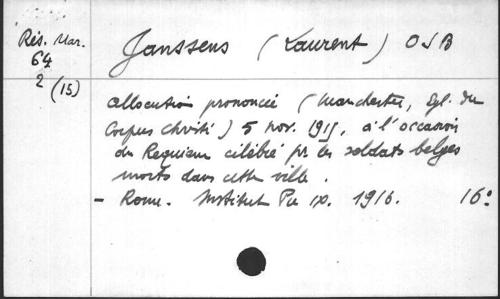 Rés. Mar.
64
2 (15)
Janssens (Laurent) OSB
allocution prononcée (Manchester, Egl. du
Corpus Christi) 5 nov. 1915, à l'occasion
du Requiem célébré pr les soldats belges
morts dans cette ville.
- Rome. Institut Pie IX. 1916. 16°